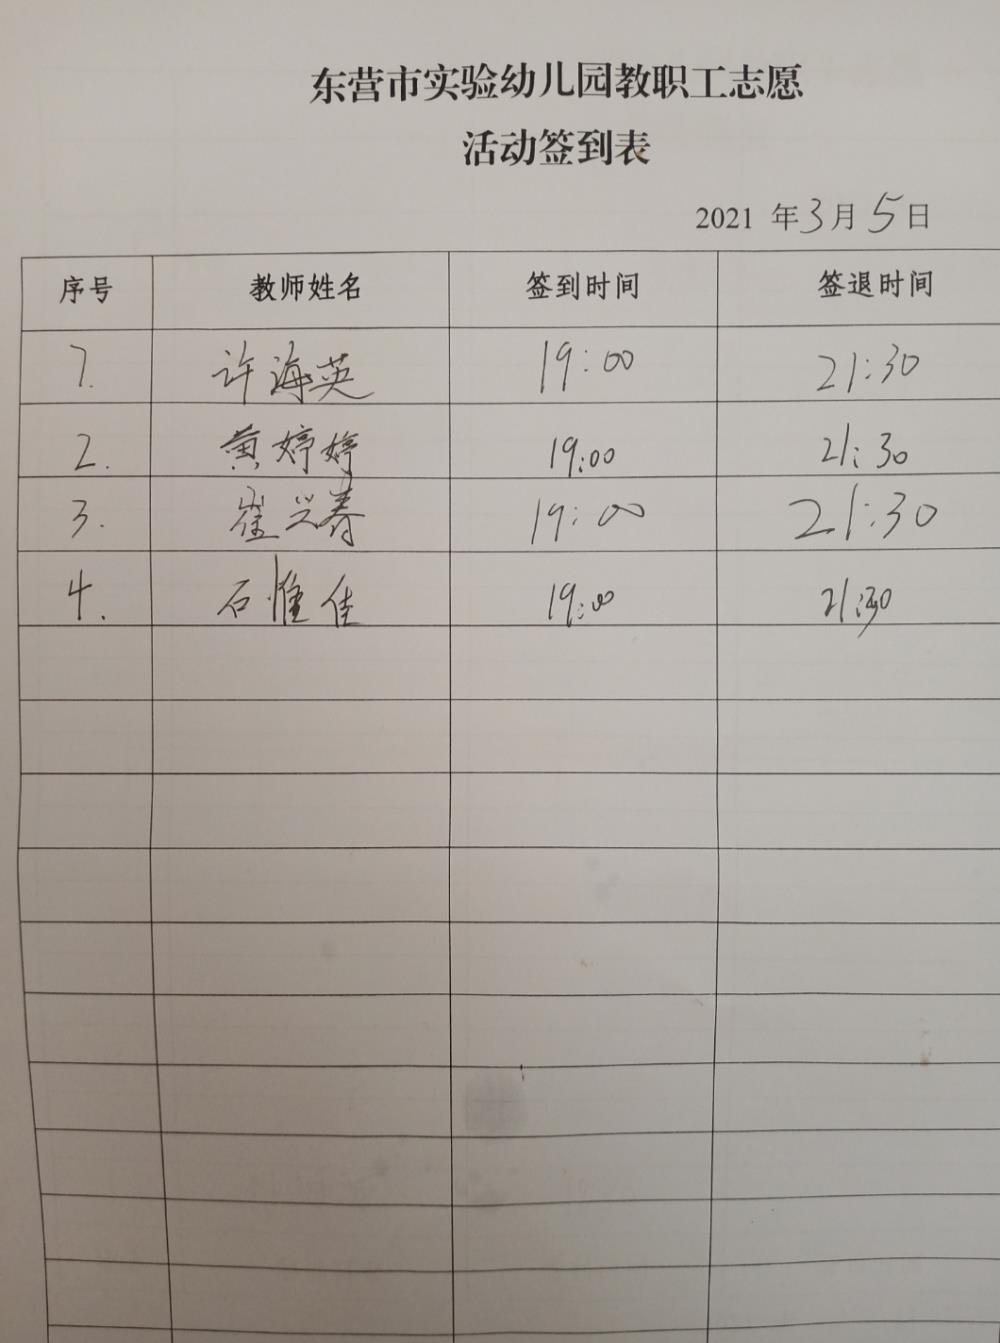 东营市实验幼儿园教职工志愿
活动签到表
2021 年3月5日
序号 教师姓名 签到时间 签退时间
1. 许海英 19:00 21:30
2. 黄婷婷 19:00 21:30
3. 崔兴春 19:00 21:30
4. 石惟佳 19:00 21:30